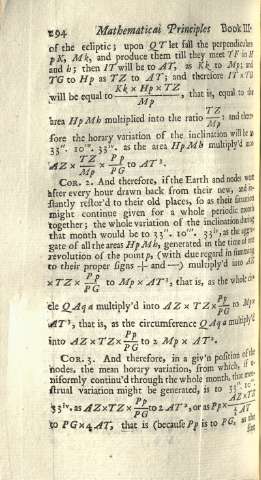 294 Mathematical Principles Book III.
of the ecliptic; upon QT let fall the perpendiculars
pK, Mk, and produce them till they meet TF in H
and h; then IT will be to AT, as Kk to Mp; and
TG to Hp as TZ to AT; and therefore IT x TG
will be equal to Kk x Hp x TZ / Mp, that is, equal to the
area HpMh multiplied into the ratio TZ / Mp: and there-
fore the horary variation of the inclination will be to
33". 10'''. 33iv. as the area HpMh multiply'd into
AZ x TZ / Mp x Pp / PG to AT².
COR. 2. And therefore, if the Earth and nodes were
after every hour drawn back from their new, and in-
stantly restor'd to their old places, so as their situation
might continue given for a whole periodic month
together; the whole variation of the inclination during
that month would be to 33". 10'''. 33iv, as the aggre-
gate of all the areas HpMh, generated in the time of one
revolution of the point p, (with due regard in summing
to their proper signs + and —) multiply'd into AZ
x TZ x Pp / PG to Mp x AT², that is, as the whole cir-
cle QAqa multiply'd into AZ x TZ x Pp / PG to Mp x
AT², that is, as the circumference QAqa multiply'd
into AZ x TZ x Pp / PG to 2 Mp x AT².
COR. 3. And therefore, in a giv'n position of the
nodes, the mean horary variation, from which, if u-
niformly continu'd through the whole month, that men-
strual variation might be generated, is to 33". 10'''.
33iv. as AZ x TZ x Pp / PG to 2 AT², or as Pp x AZ x TZ / ½ AT
to PG x 4 AT, that is (because Pp is to PG, as the